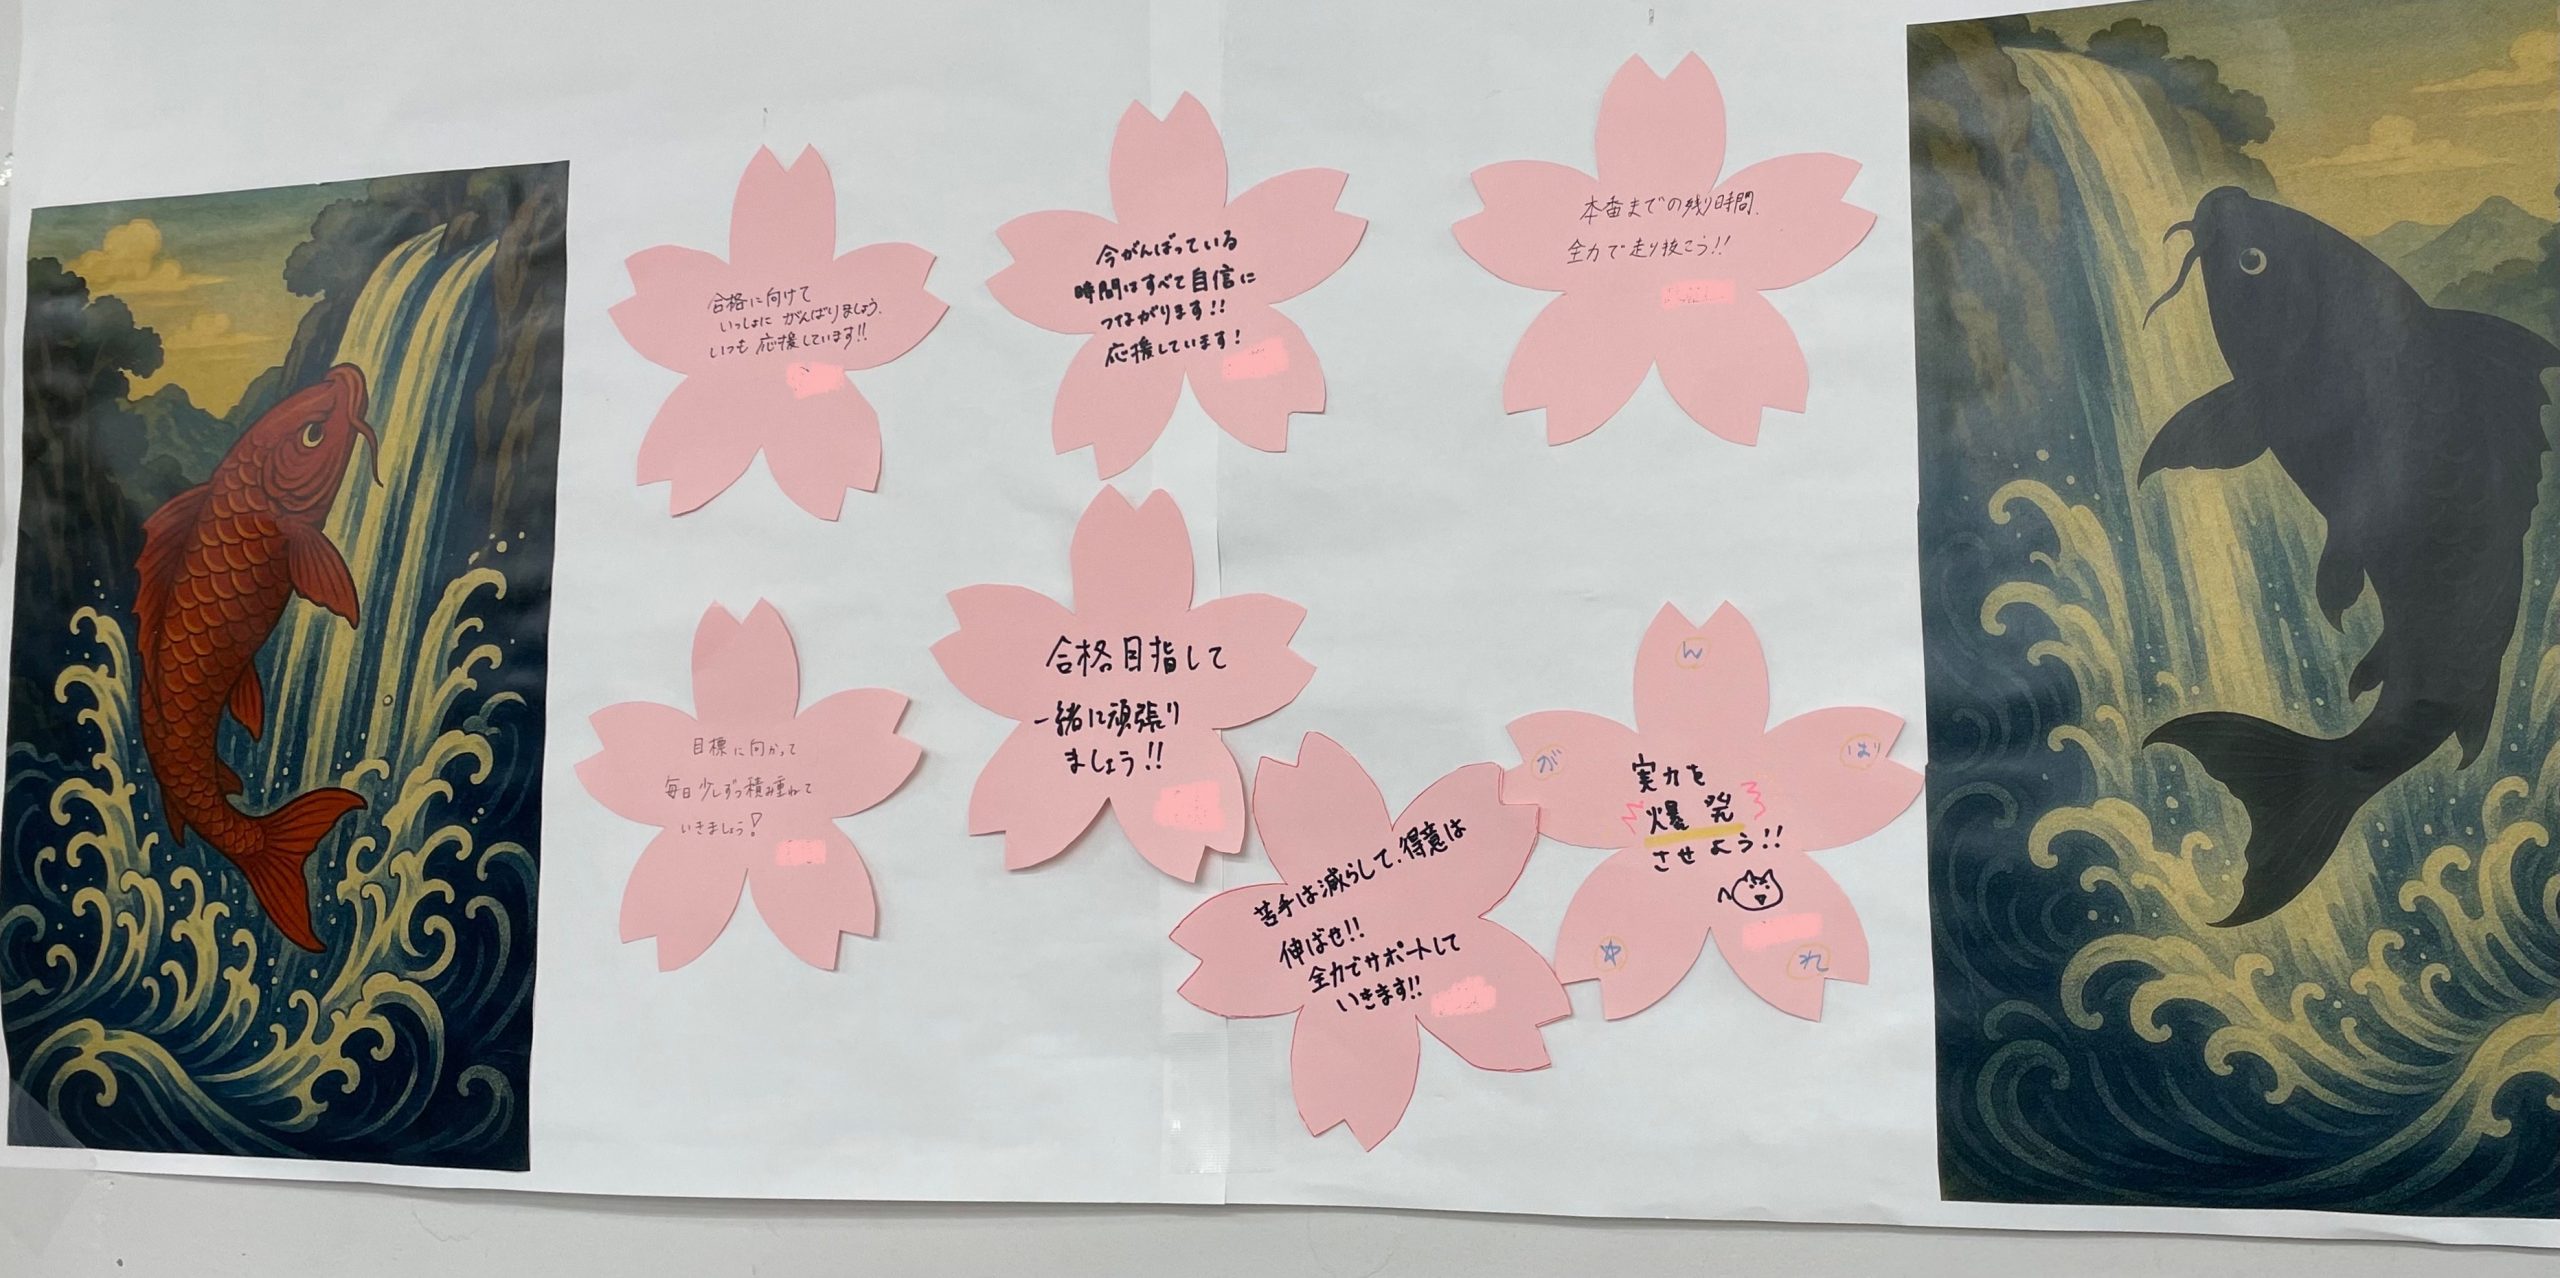 合格に向けて
いっしょに がんばりましょう。
いつも 応援しています!!
今がんばっている
時間はすべて自信に
つながります!!
応援しています!
本番までの残り時間、
全力で走り抜こう!!
目標に向かって
毎日少しずつ積み重ねて
いきましょう!
合格目指して
一緒に頑張り
ましょう!!
苦手は減らして、得意は
伸ばせ!!
全力でサポートして
いきます!!
が
ん
ば
れ
☆
実力を
爆発
させよう!!